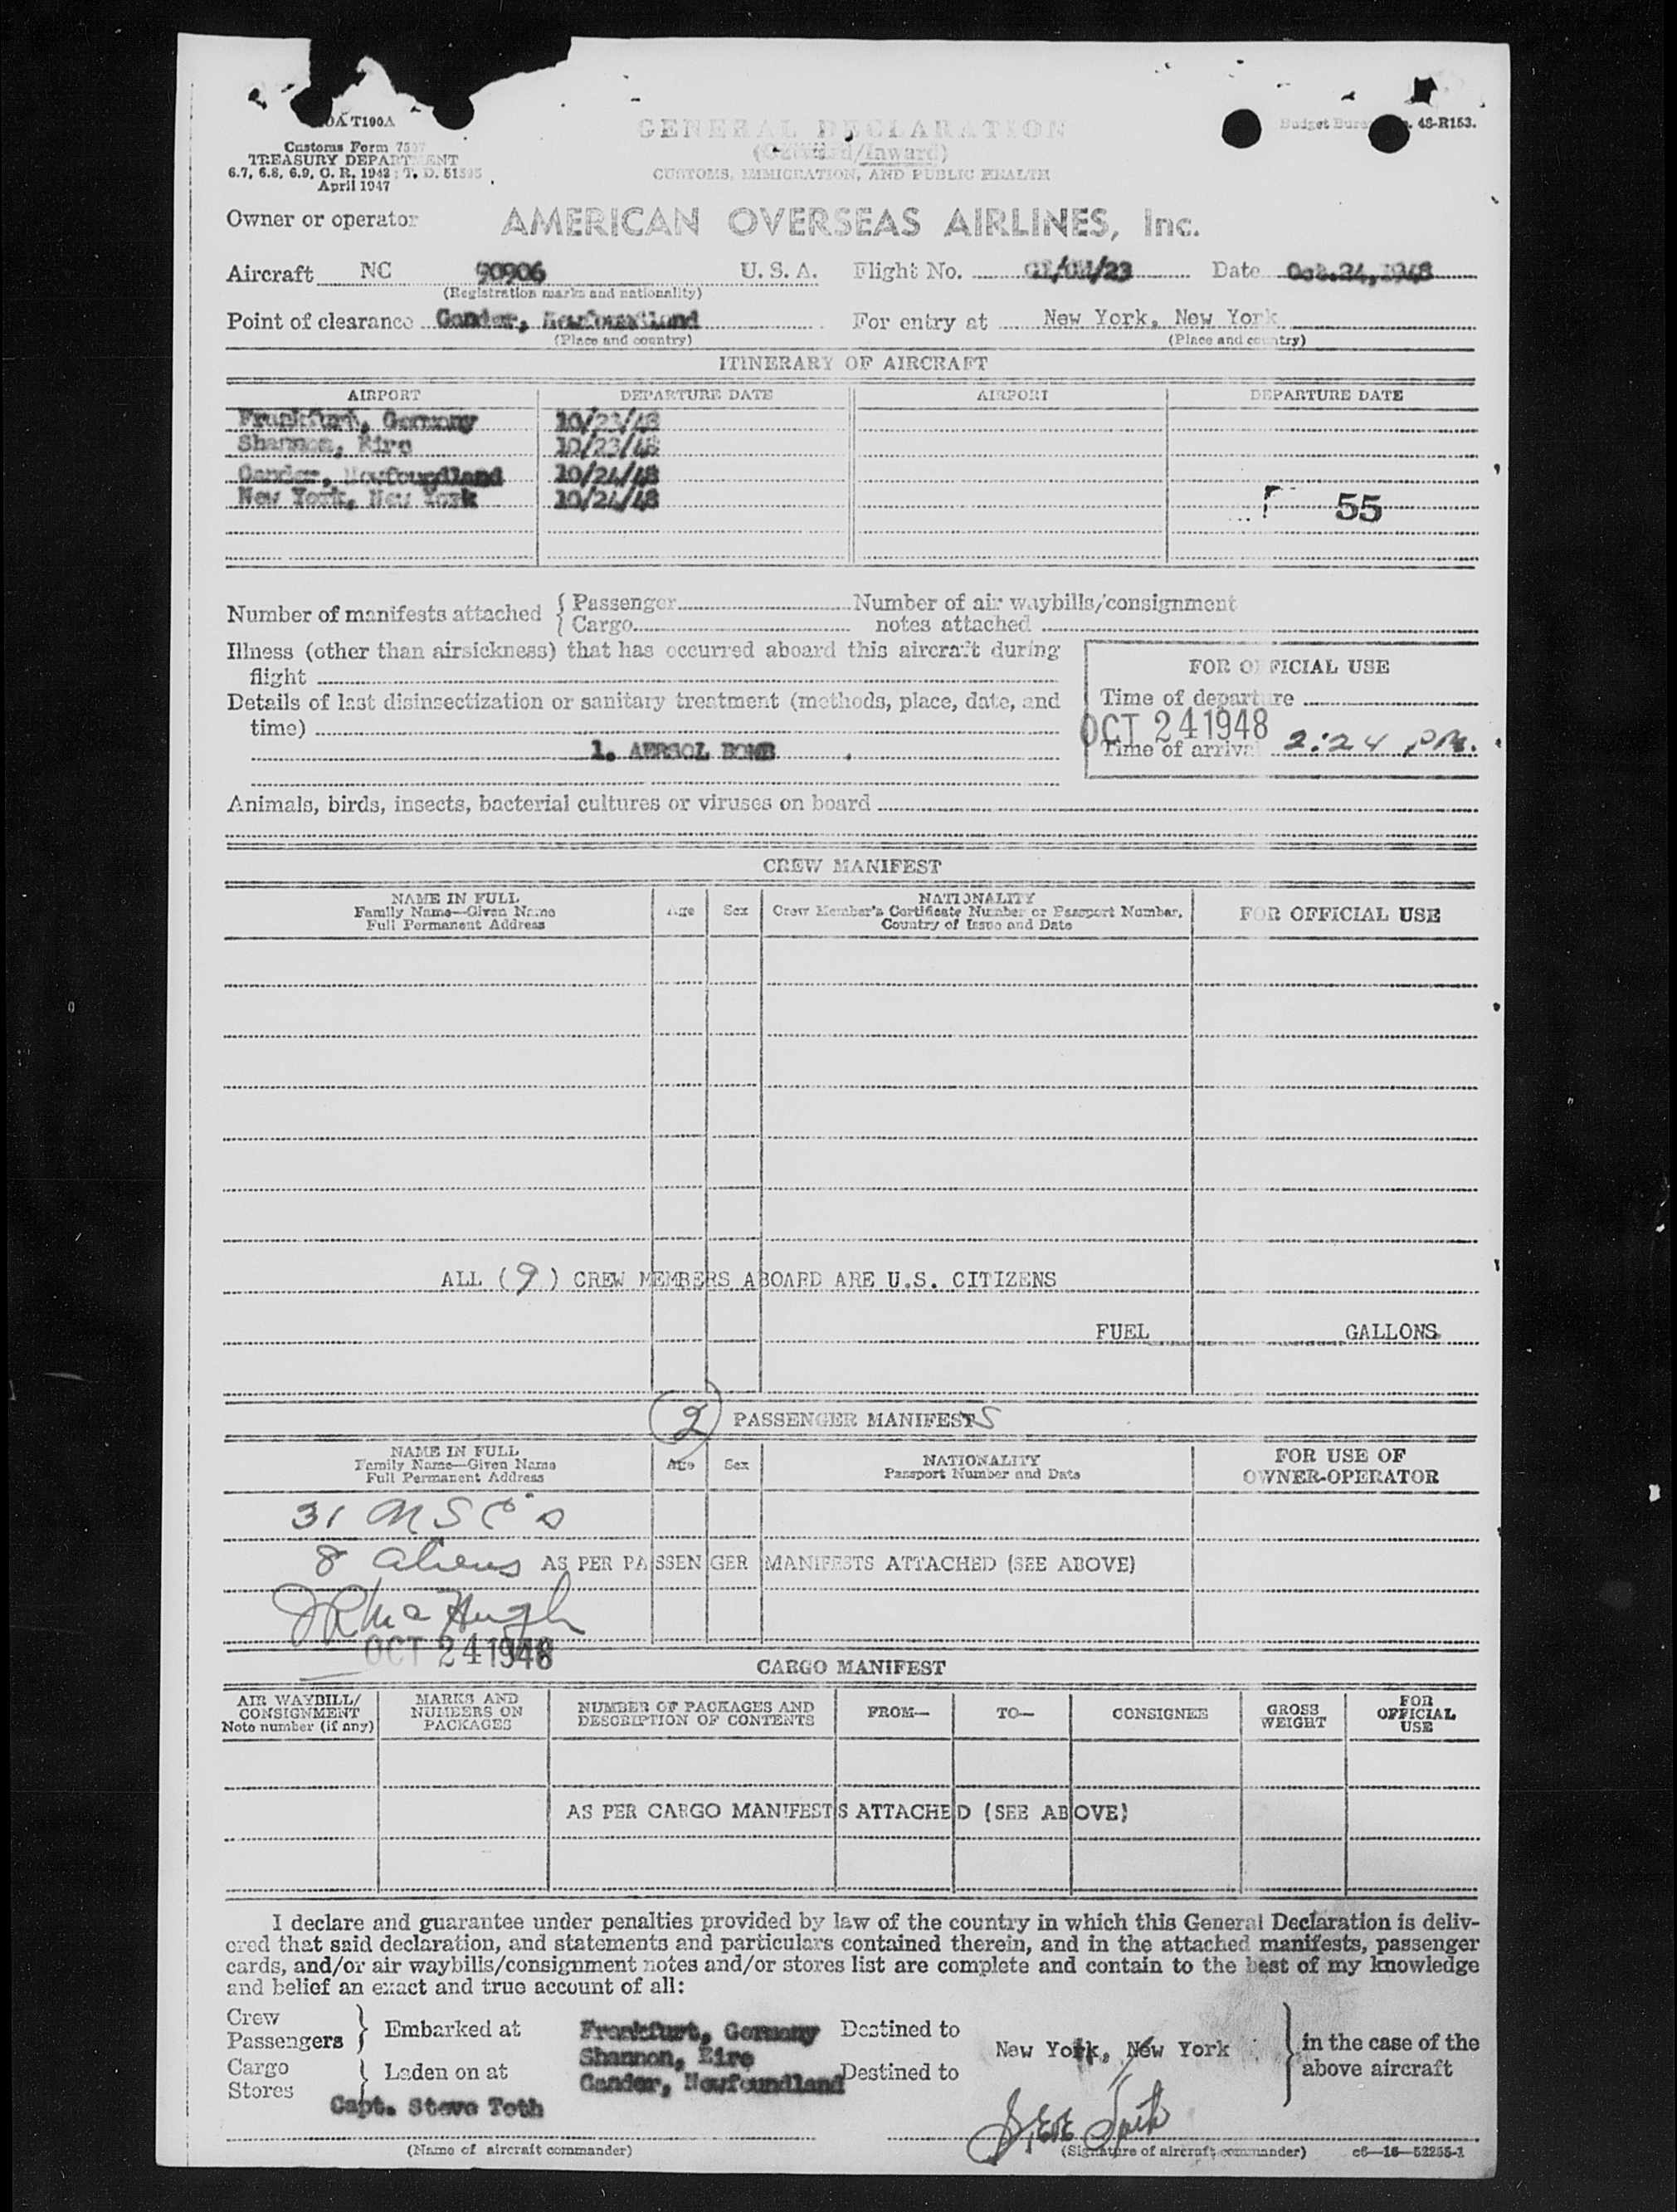 OA T100A
Customs Form 7507
TREASURY DEPARTMENT
6.7, 6.8, 6.9, C. R. 1942: T. D. 51595
April 1947
GENERAL DECLARATION
(Outward/Inward)
CUSTOMS, IMMIGRATION, AND PUBLIC HEALTH
Budget Bureau 48-R153.
Owner or operator AMERICAN OVERSEAS AIRLINES, Inc.
Aircraft NC 90906 U. S. A. Flight No. Date Oct.24,1948
(Registration marks and nationality)
Point of clearance Gander, Newfoundland For entry at New York, New York
(Place and country) (Place and country)
ITINERARY OF AIRCRAFT
AIRPORT DEPARTURE DATE AIRPORT DEPARTURE DATE
Frankfurt, Germany 10/23/48
Shannon, Eire 10/23/48
Gander, Newfoundland 10/24/48
New York, New York 10/24/48
55
Number of manifests attached { Passenger Number of air waybills/consignment
{ Cargo notes attached
Illness (other than airsickness) that has occurred aboard this aircraft during
flight
Details of last disinsectization or sanitary treatment (methods, place, date, and
time)
1. AERSOL BOMB
FOR OFFICIAL USE
Time of departure
OCT 24 1948
Time of arrival 2:24 PM.
Animals, birds, insects, bacterial cultures or viruses on board
CREW MANIFEST
NAME IN FULL
Family Name—Given Name
Full Permanent Address
Age
Sex
NATIONALITY
Crew Member's Certificate Number or Passport Number,
Country of Issue and Date
FOR OFFICIAL USE
ALL (9) CREW MEMBERS ABOARD ARE U.S. CITIZENS
FUEL GALLONS
(2) PASSENGER MANIFESTS
NAME IN FULL
Family Name—Given Name
Full Permanent Address
Age
Sex
NATIONALITY
Passport Number and Date
FOR USE OF
OWNER-OPERATOR
31
8 aliens AS PER PASSENGER MANIFESTS ATTACHED (SEE ABOVE)
J R McHugh
OCT 24 1948
CARGO MANIFEST
AIR WAYBILL/
CONSIGNMENT
Note number (if any)
MARKS AND
NUMBERS ON
PACKAGES
NUMBER OF PACKAGES AND
DESCRIPTION OF CONTENTS
FROM—
TO—
CONSIGNEE
GROSS
WEIGHT
FOR
OFFICIAL
USE
AS PER CARGO MANIFESTS ATTACHED (SEE ABOVE)
I declare and guarantee under penalties provided by law of the country in which this General Declaration is deliv-
ered that said declaration, and statements and particulars contained therein, and in the attached manifests, passenger
cards, and/or air waybills/consignment notes and/or stores list are complete and contain to the best of my knowledge
and belief an exact and true account of all:
Crew
Passengers } Embarked at Frankfurt, Germany Destined to
Shannon, Eire New York, New York } in the case of the
Cargo
Stores } Laden on at Gander, Newfoundland Destined to above aircraft
Capt. Steve Toth
Steve Toth
(Name of aircraft commander) (Signature of aircraft commander) c6—16—52255-1